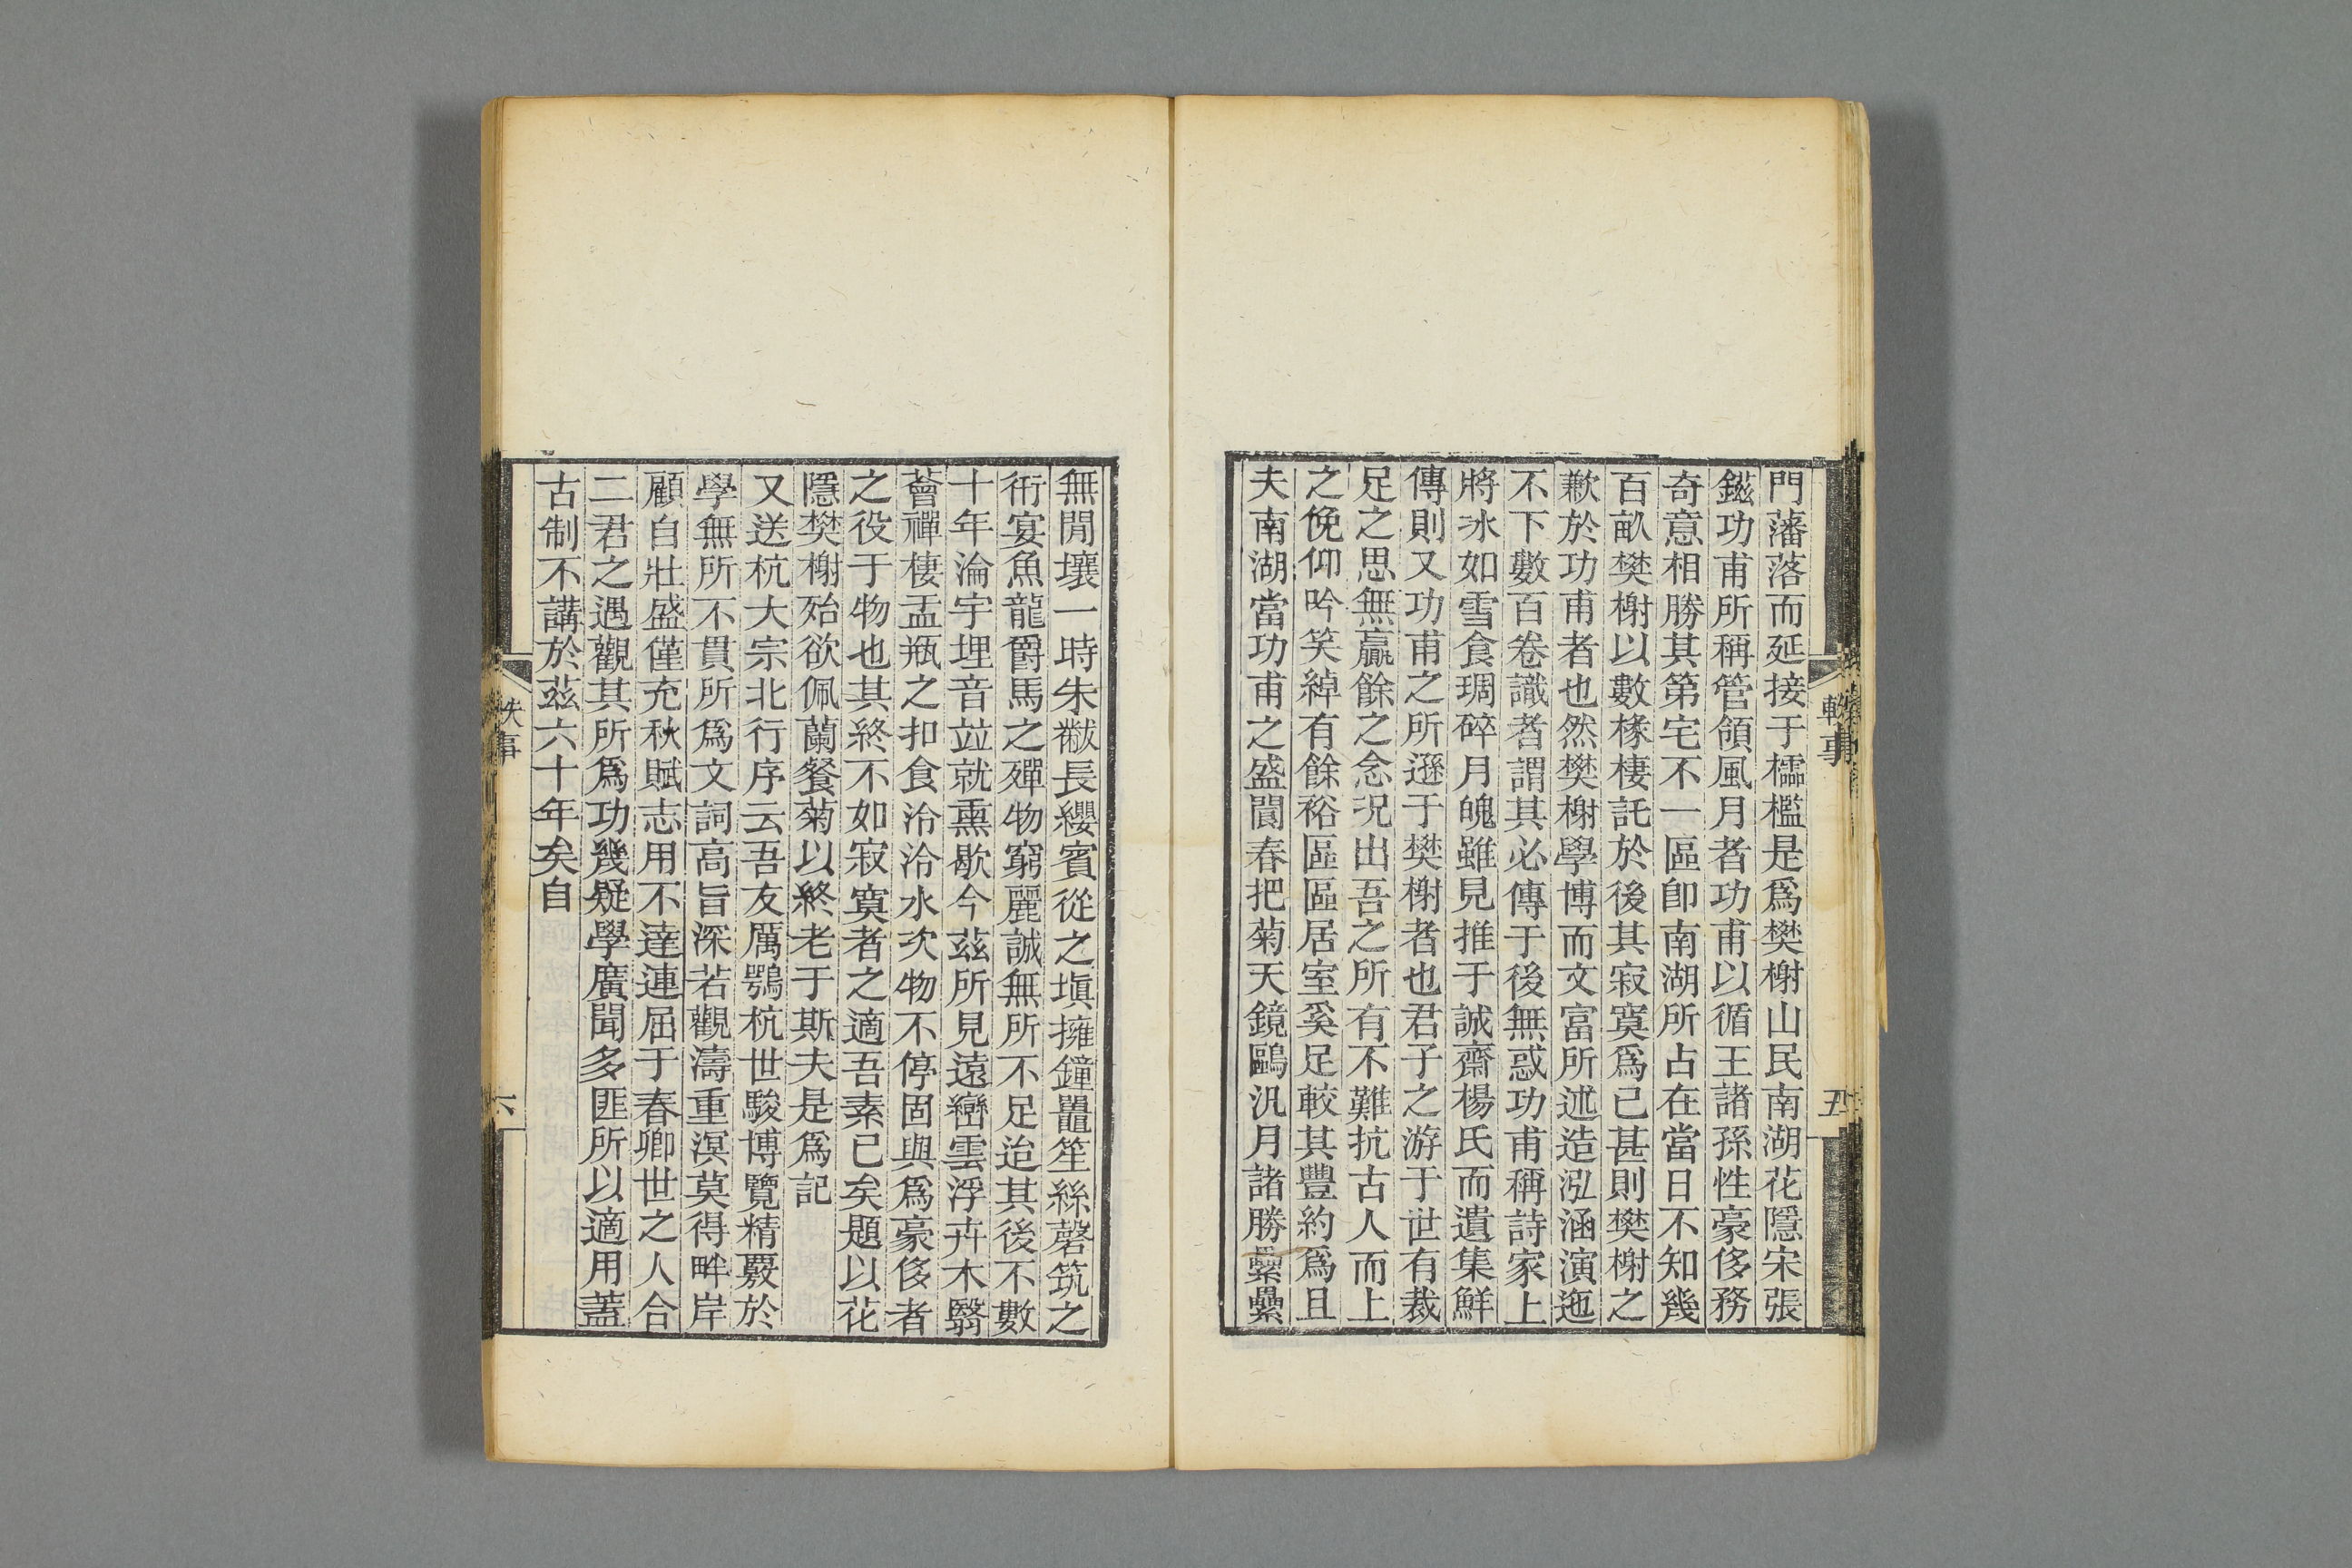 門藩落而延接于櫺檻是爲樊榭山民南湖花隱宋張
鎡功甫所稱管領風月者功甫以循王諸孫性豪侈務
奇意相勝其第宅不一區卽南湖所占在當日不知幾
百畝樊榭以數椽棲託於後其寂寞爲已甚則樊榭之
歉於功甫者也然樊榭學博而文富所述造泓涵演迤
不下數百卷識者謂其必傳于後無惑功甫稱詩家上
將冰如雪食琱碎月魄雖見推于誠齋楊氏而遺集鮮
傳則又功甫之所遜于樊榭者也君子之游于世有裁
足之思無贏餘之念况出吾之所有不難抗古人而上
之俛仰吟笑綽有餘裕區區居室奚足較其豐約爲且
夫南湖當功甫之盛閬春把菊天鏡鷗汎月諸勝纍纍
軼事
五
無閒壤一時朱黻長纓賓從之塡擁鐘鼉笙絲磬筑之
衎宴魚龍爵馬之殫物窮麗誠無所不足迨其後不數
十年淪宇埋音竝就熏歇今茲所見遠巒雲浮卉木翳
薈禪棲盂瓶之扣食泠泠水次物不停固與爲豪侈者
之役于物也其終不如寂寞者之適吾素已矣題以花
隱樊榭殆欲佩蘭餐菊以終老于斯夫是爲記
又送杭大宗北行序云吾友厲鶚杭世駿博覽精覈於
學無所不貫所爲文詞高旨深若觀濤重溟莫得畔岸
顧自壯盛僅充秋賦志用不達連屈于春卿世之人合
二君之遇觀其所爲功幾疑學廣聞多匪所以適用蓋
古制不講於茲六十年矣自
軼事
六